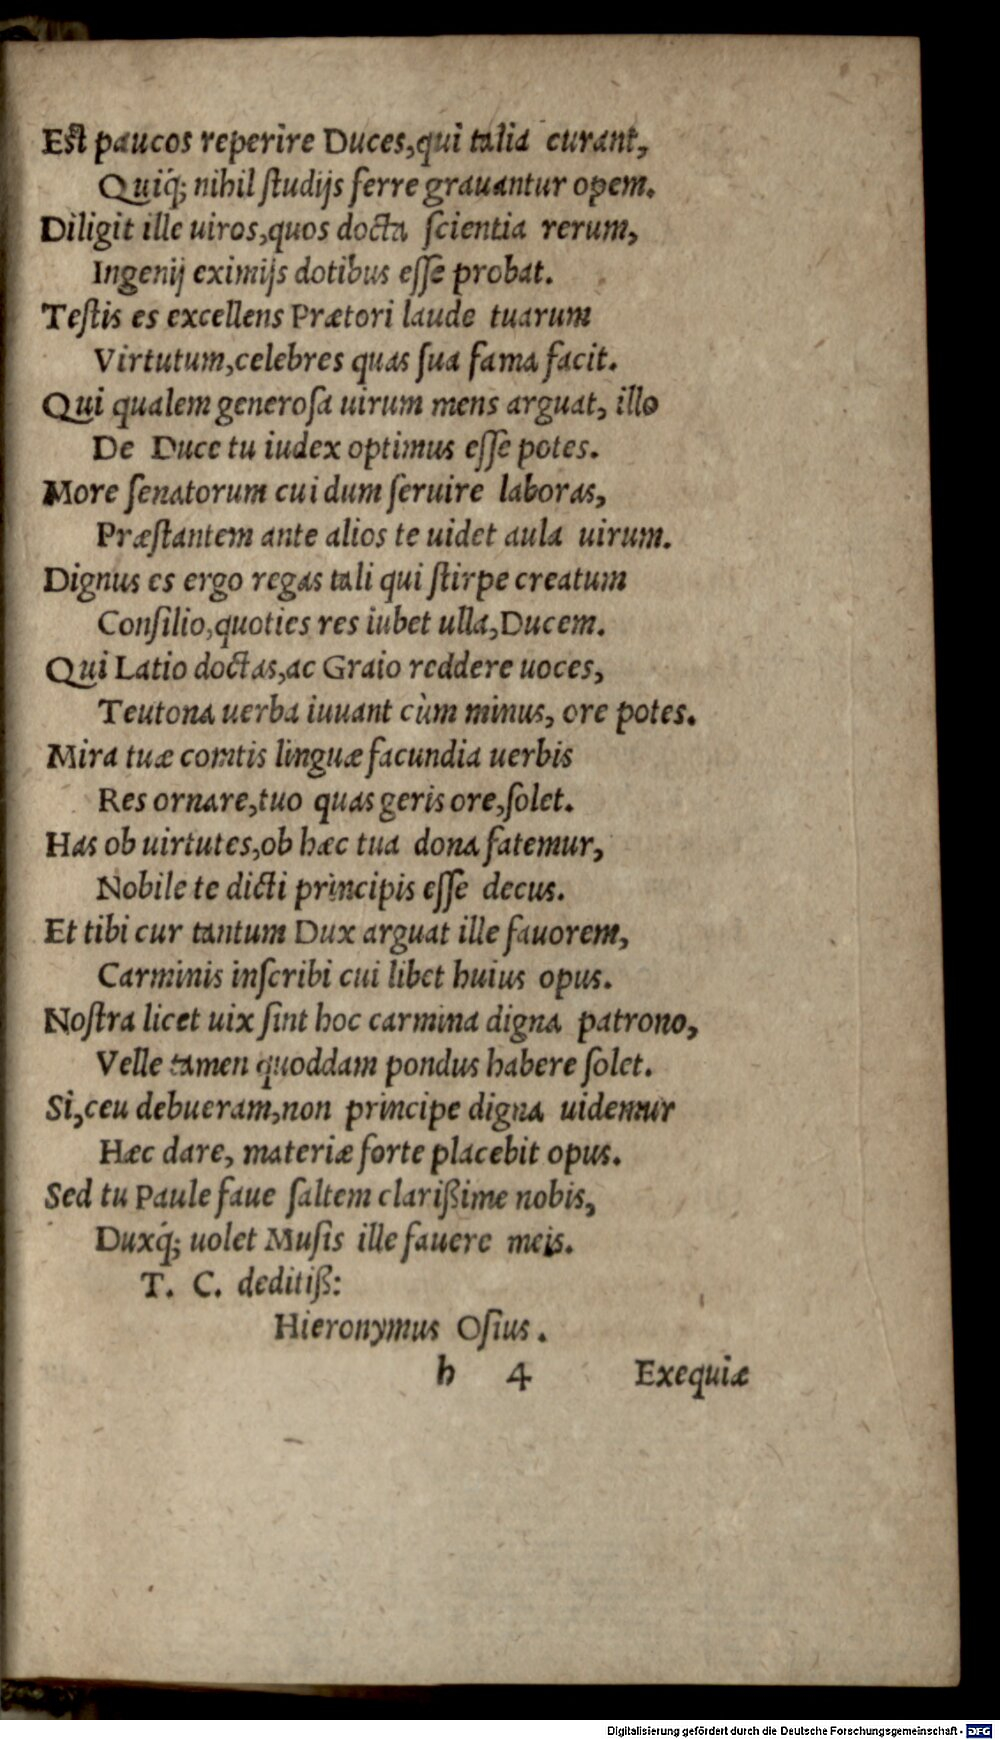 Est paucos reperire Duces,qui talia curant,
Quiq́; nihil ſtudijs ferre grauantur opem.
Diligit ille uiros,quos docta ſcientia rerum,
Ingenij eximijs dotibus eſſe probat.
Teſtis es excellens Prætori laude tuarum
Virtutum,celebres quas ſua fama facit.
Qui qualem generoſa uirum mens arguat, illo
De Duce tu iudex optimus eſſe potes.
More ſenatorum cui dum ſeruire laboras,
Præſtantem ante alios te uidet aula uirum.
Dignus es ergo regas tali qui ſtirpe creatum
Conſilio,quoties res iubet ulla,Ducem.
Qui Latio doctas,ac Graio reddere uoces,
Teutona uerba iuuant cùm minus, ore potes.
Mira tuæ comtis linguæ facundia uerbis
Res ornare,tuo quas geris ore,ſolet.
Has ob uirtutes,ob hæc tua dona fatemur,
Nobile te dicti principis eſſe decus.
Et tibi cur tantum Dux arguat ille fauorem,
Carminis inſcribi cui libet huius opus.
Noſtra licet uix ſint hoc carmina digna patrono,
Velle tamen quoddam pondus habere ſolet.
Si,ceu debueram,non principe digna uidentur
Hæc dare, materiæ forte placebit opus.
Sed tu Paule faue ſaltem clarißime nobis,
Duxq́; uolet Muſis ille fauere meis.
T. C. deditiß:
Hieronymus Oſius.
b 4 Exequiæ
Digitalisierung gefördert durch die Deutsche Forschungsgemeinschaft - DFG